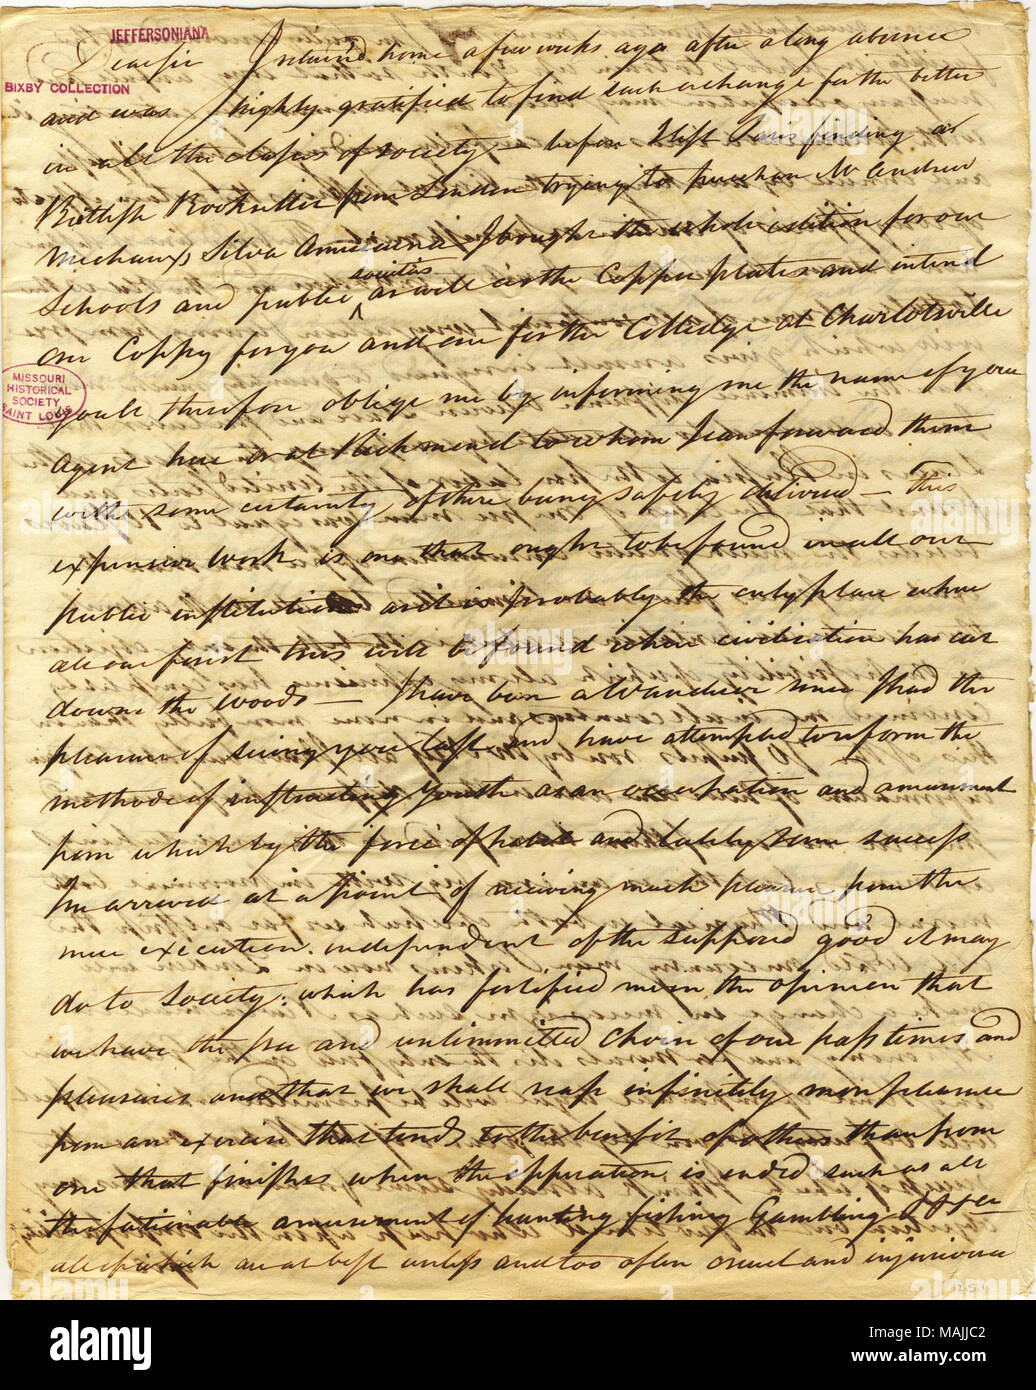 JEFFERSONIANA
BIXBY COLLECTION
Dear sir I returnd home a few weeks ago after a long absence
and was highly gratified to find such a change for the better
in all the classes of society — before I left Paris finding a
Brittish Bookseller from London trying to purchase Mr Andrew
Michaux's Silva Americana I bought the whole edition for our
Schools and public societies as well as the Copper plates and intend
one Coppy for you and one for the Colledge at Charlotsville
youll therefore oblige me by informing me the name of your
MISSOURI
HISTORICAL
SOCIETY
SAINT LOUIS
agent here or at Richmond to whom I can forward them
with some certainty of there being safely delivered — This
expensive work is one that ought to be found in all our
public institutions as it is probably the only place where
all our finest trees will be found when civilisation has cut
downe the woods — I have been a Wanderer since I had the
pleasure of seeing you last and have attempted to reform the
methode of instructing youth as an occupation and amusement
from which by the force of habit and lately some success
Im arrived at a point of recieving much pleasure from the
mere execution independent of the supposed good it may
do to Society: which has fortified me in the opinion that
we have the free and unlimmitted choice of our passtimes and
pleasures and that we shall reap infinitely more pleasure
from an exercise that tends to the benefit of others than from
one that finishes when the opperation is ended such as all
the fationable amusement of hunting fishing Gambling &ca &ca
all of which are at best useless and too often cruel and injurious
alamy
Image ID: MAJJC2
www.alamy.com